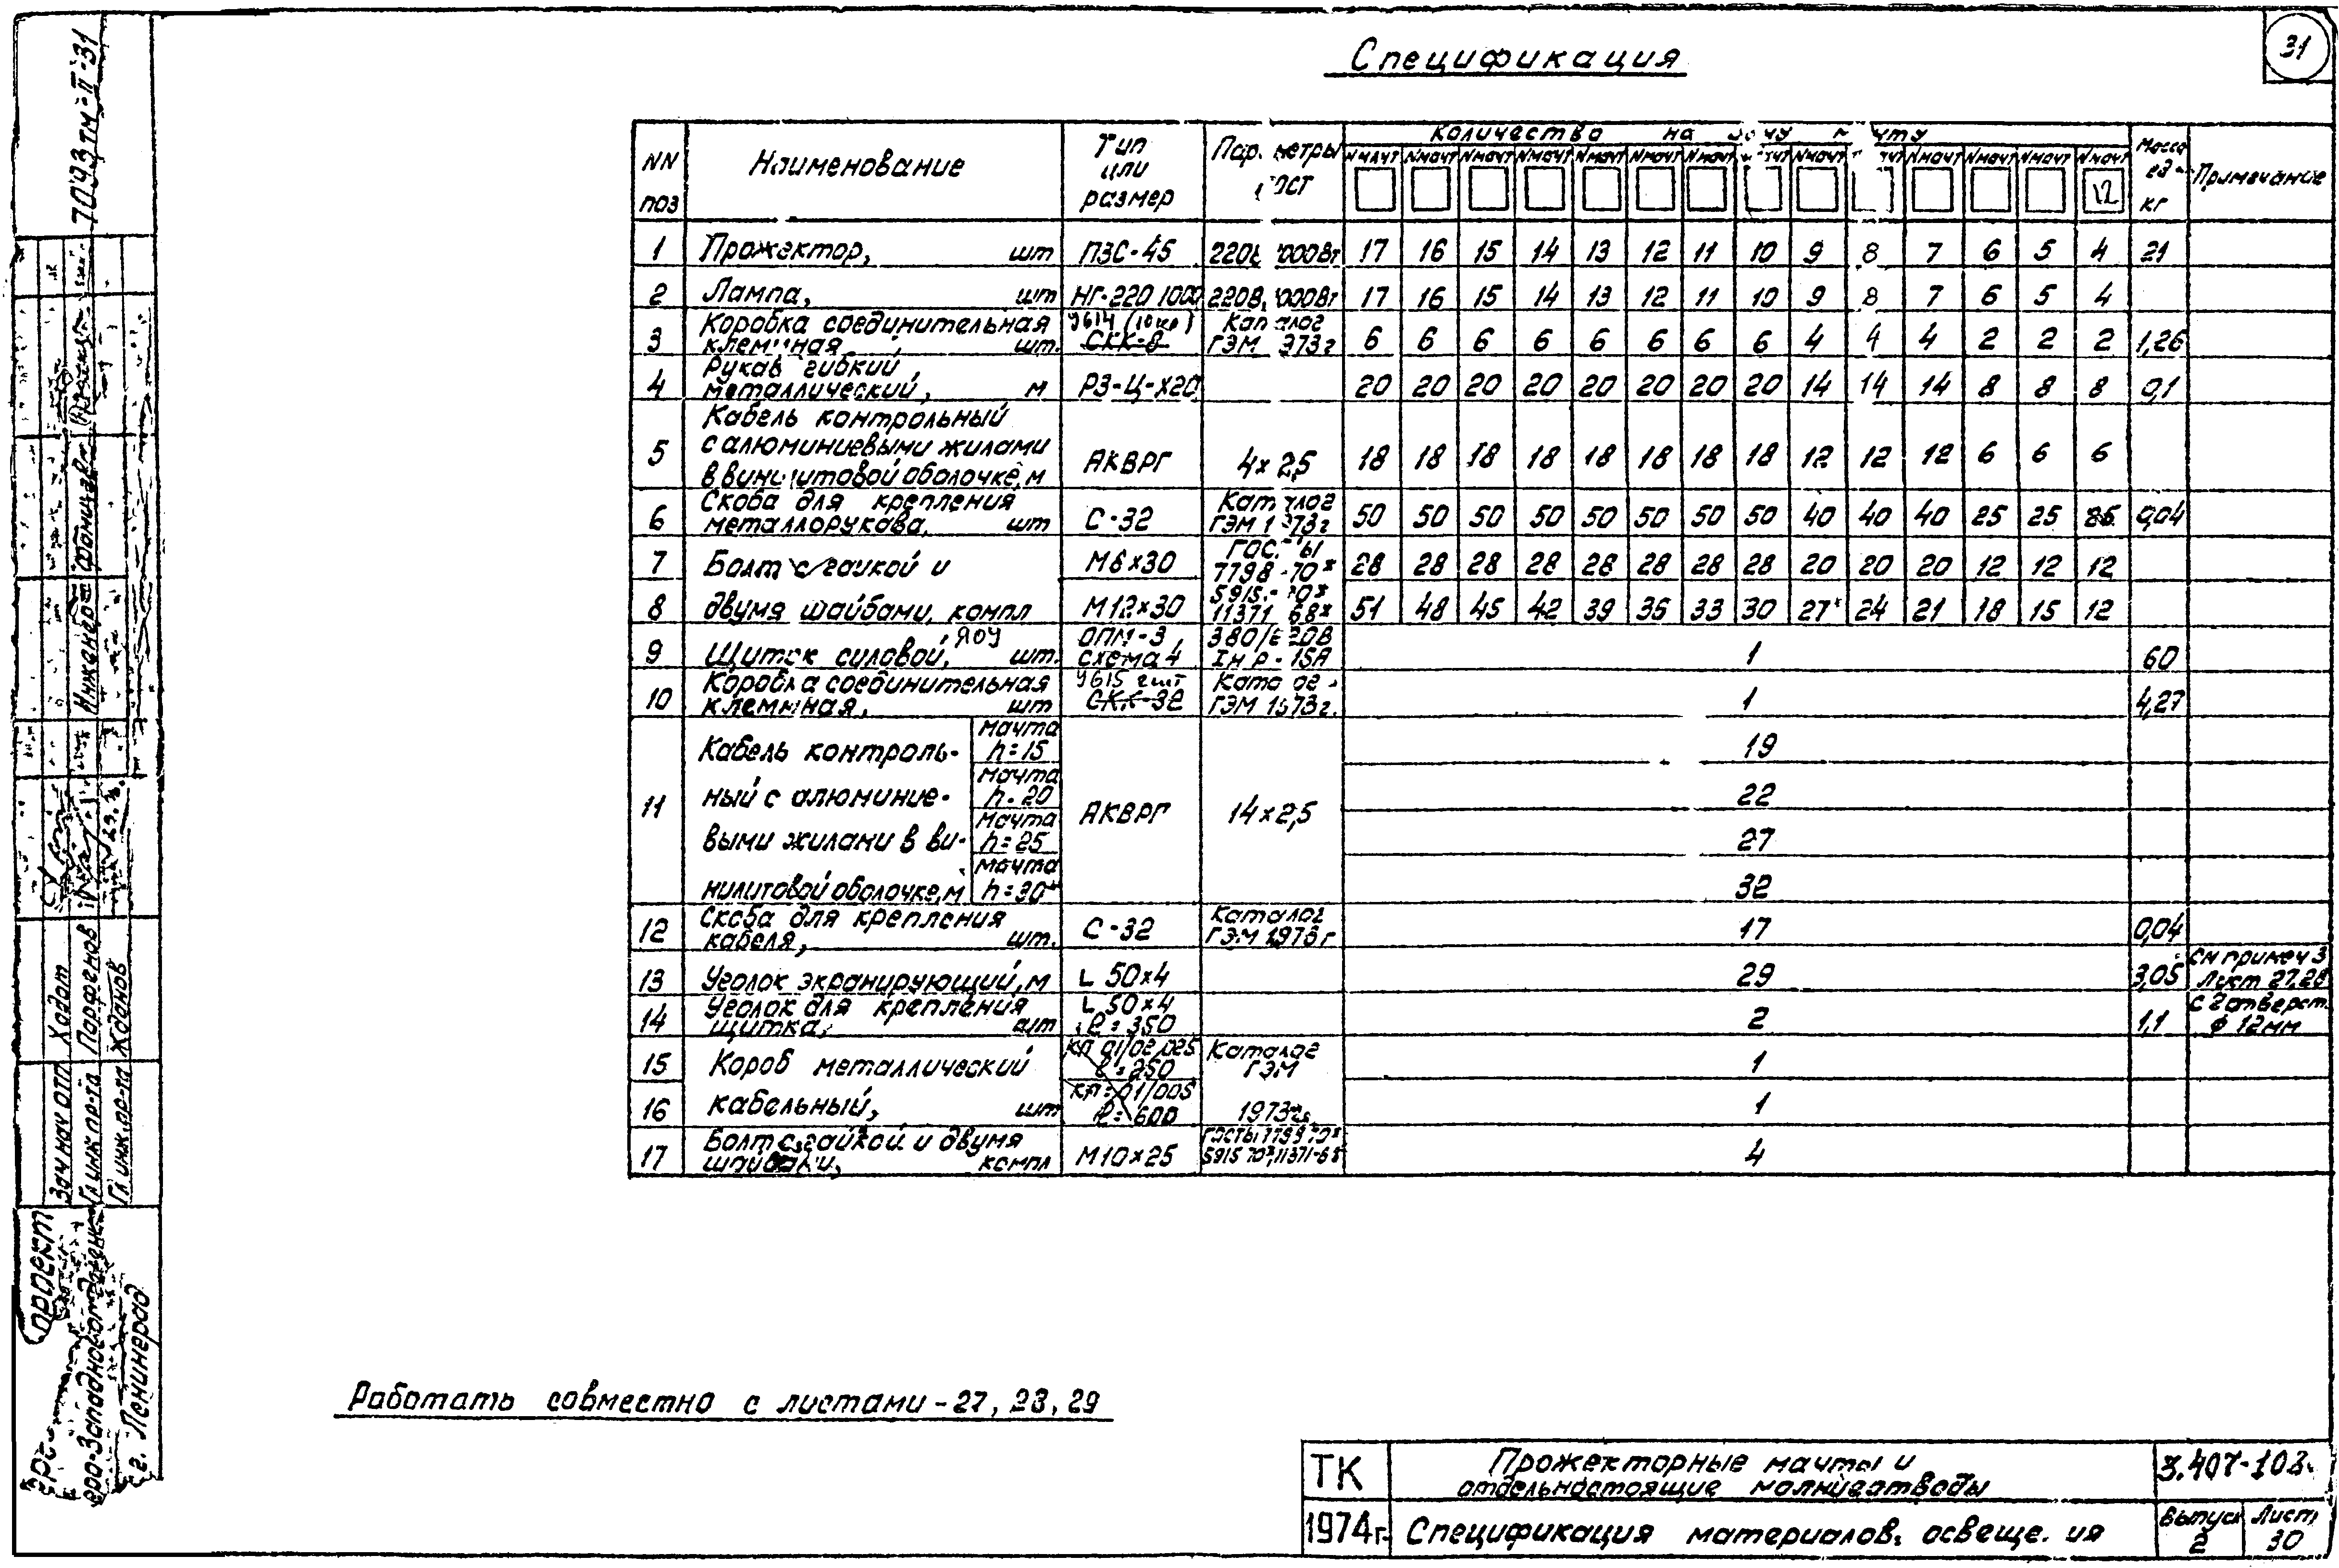 31
Спецификация
7093тм-II-31
NN поз
Наименование
Тип или размер
Количество на
Масса ед. кг
Примечание
N мачт N мачт N мачт N мачт N мачт N мачт N мачт N мачт N мачт N мачт N мачт N мачт
12
1 Прожектор, шт ПЗС-45 17 16 15 14 13 12 11 10 9 8 7 6 5 4 21
2 Лампа, шт НГ-220 1000 17 16 15 14 13 12 11 10 9 8 7 6 5 4
3 Коробка соединительная шт. У614 СКК-8 6 6 6 6 6 6 6 6 4 4 4 2 2 2 1,26
4 Рукав гибкий, металлический, м РЗ-Ц-Х20 20 20 20 20 20 20 20 20 14 14 14 8 8 8 0,1
5 Кабель контрольный
с алюминиевыми жилами АКВРГ 4х2,5 18 18 18 18 18 18 18 18 12 12 12 6 6 6
оболочке, м
6 Скоба для крепления
металлорукава, шт С-32 50 50 50 50 50 50 50 50 40 40 40 25 25 0,04
7 Болт с гайкой и М6х30 28 28 28 28 28 28 28 28 20 20 20 12 12 12
8 двумя шайбами, компл М12х30 51 48 45 42 39 36 33 30 27 24 21 18 15 12
9 Щиток силовой, ЯОУ шт. ОПМ-3 схема 4 1 60
10 Коробка соединительная
клеммная, шт У615 СКК-32 1 4,27
11 Кабель контроль-
ный с алюминие-
выми жилами в ви-
нилитовой оболочке, м
Мачта h=15 19
Мачта h=20 22
Мачта h=25 27
Мачта h=30 32
АКВРГ 14х2,5
12 Скоба для крепления
кабеля, шт. С-32 Каталог ГЭМ 1973г 17 0,04
13 Уголок экранирующий, м L 50х4 29 3,05 см примеч 3 Лист 27,28
14 Уголок для крепления
щитка, шт L 50х4 ℓ=350 2 1,1 с 2 отверст. ф 12мм
15 Короб металлический ℓ=250 Каталог ГЭМ 1
16 кабельный, шт ℓ=600 1973г. 1
17 Болт с гайкой и двумя
шайбами, компл М10х25 4
Работать совместно с листами -27, 28, 29
ТК
Прожекторные мачты и
отдельностоящие молниеотводы
3.407-108
1974г.
Спецификация материалов
Выпуск 2
Лист 30
Инженер
Зам нач отп Хадат
Гл инж пр-та Парфенов
Гл инж. пр-та Жданов
г. Ленинград